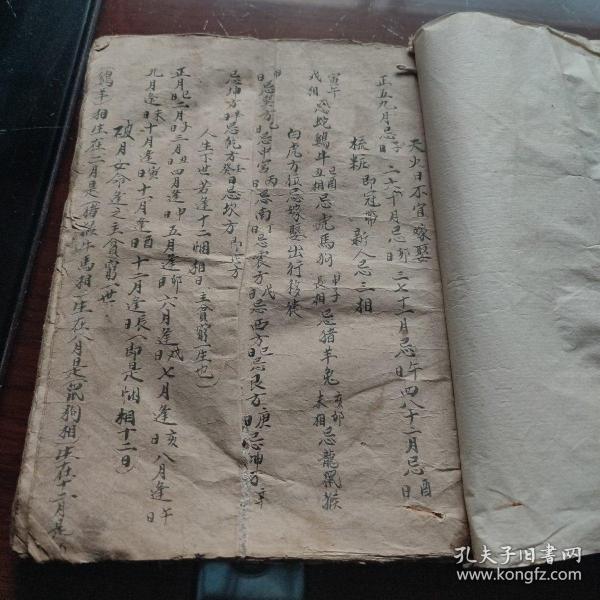 天火日不宜嫁娶
正五九月忌子日 二六十月忌卯日 三七十一月忌午日 四八十二月忌酉日
梳粧即冠帶 新人忌三相
寅午戌相忌蛇鷄牛 巳酉丑相忌虎馬狗 申子辰相忌猪羊兔 亥卯未相忌龍鼠猴
白虎方位忌嫁娶出行移徙
甲日忌巽方 乙日忌中宮 丙日忌南 戊日忌震方 日忌西方 己日忌艮方 庚日忌坤方 辛
日忌坤方 日忌乾方 壬癸日忌坎方
人生下世若逢十二個相日主貧窮一生也
正月巳日 二月子日 三月丑日 四月逢申日 五月逢卯日 六月逢戌日 七月逢亥日 八月逢午日
九月逢未日 十月逢寅日 十一月逢酉日 十二月逢辰日 即是 相十二日
破月女命逢之主貧窮一世
鷄羊相生在二月是 猪 牛馬相生在八月是 鼠狗相生在十二月是
孔夫子旧书网
www.kongfz.com